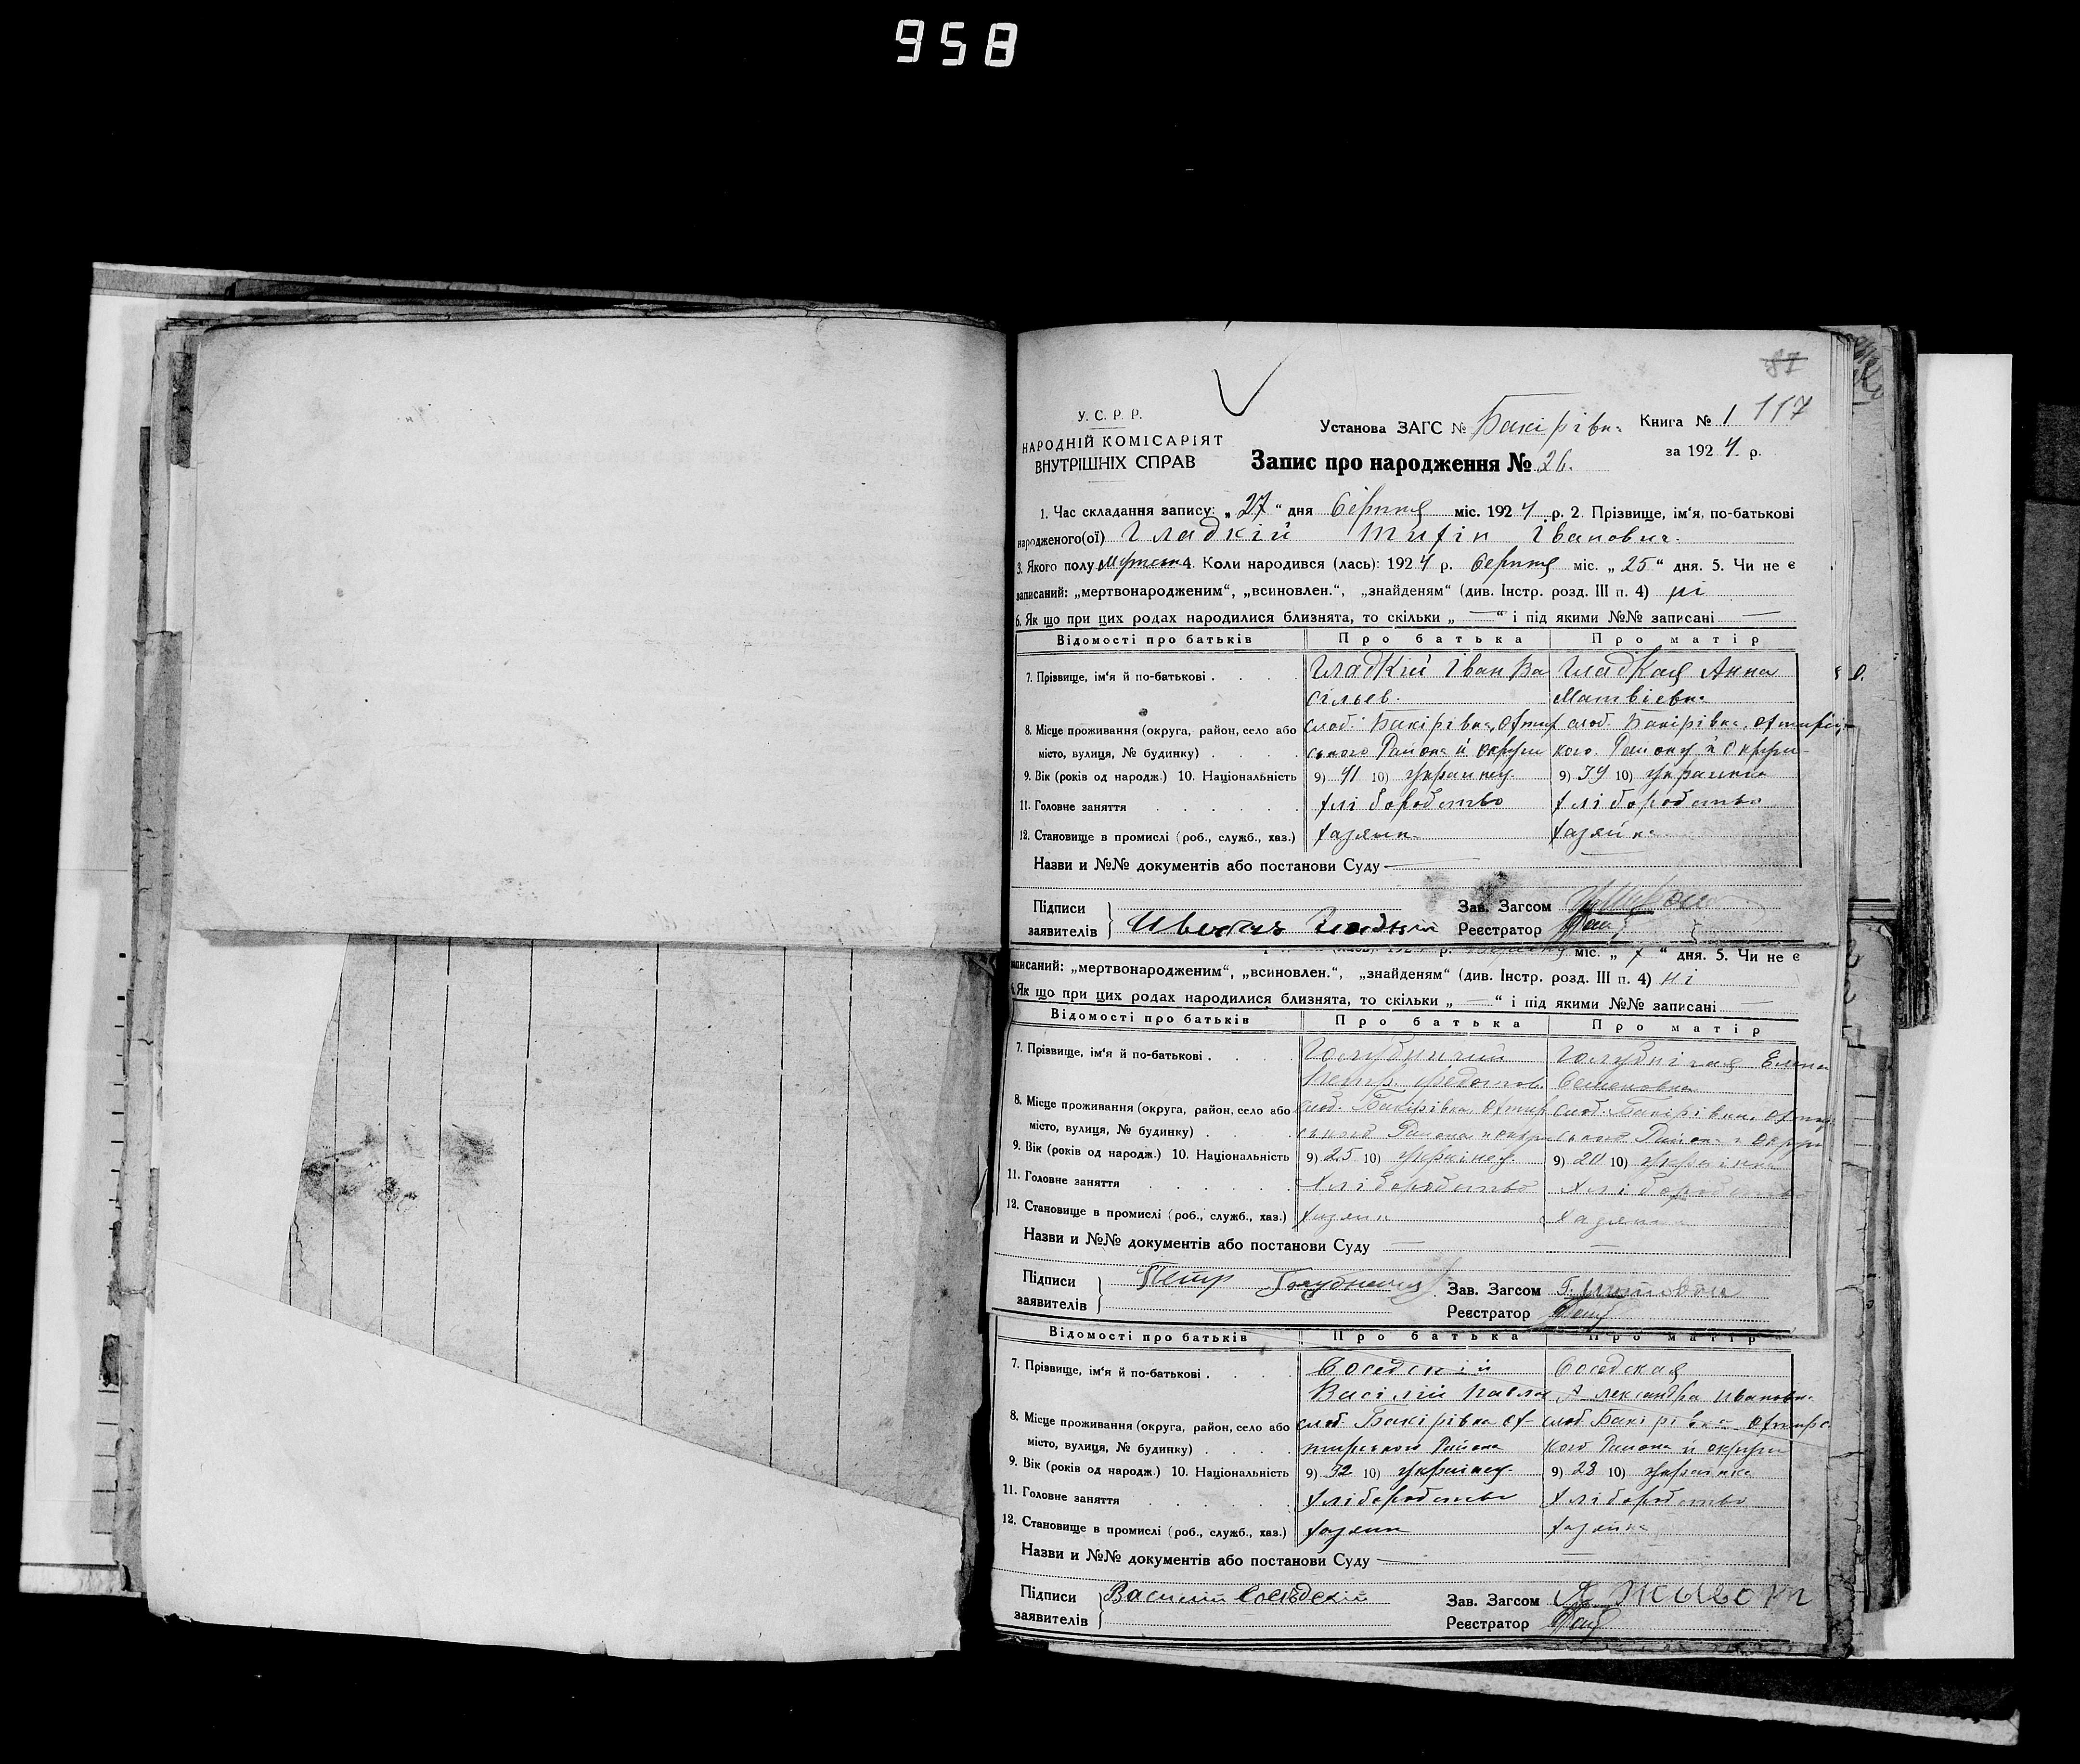 958
87
У. С. Р. Р.
НАРОДНІЙ КОМІСАРІЯТ
ВНУТРІШНІХ СПРАВ
Установа ЗАГС № Бакірівка Книга № 1 117
Запис про народження № 26. за 1924 р.
1. Час складання запису: „27“ дня серпня міс. 1924 р. 2. Прізвище, ім‘я, по-батькові
народженого(ої) Гладкій Іванович
3. Якого полу 4. Коли народився (лась): 1924 р. серпня міс. „25“ дня. 5. Чи не є
записаний: „мертвонародженим“, „всиновлен.“, „знайденям“ (див. Інстр. розд. III п. 4) ні
6. Як що при цих родах народилися близнята, то скільки „—“ і під якими №№ записані —
Відомості про батьків Про батька Про матір
7. Прізвище, ім‘я й по-батькові Гладкій Іван Ва Гладкая Анна
сільев. Матвіевна
8. Місце проживання (округа, район, село або слоб. Бакірівка, Охтир слоб. Бакірівка, Охтирсь-
місто, вулиця, № будинку) ського Района й округи кого Району й округи
9. Вік (років од народж.) 10. Національність 9) 41 10) Украинец 9) 39 10) Украинка
11. Головне заняття Хліборобство Хліборобство
12. Становище в промислі (роб., служб., хаз.) Хазяин Хазяйка
Назви и №№ документів або постанови Суду —
Підписи Зав. Загсом
заявителів Гладкий Реєстратор
міс. „7“ дня. 5. Чи не є
записаний: „мертвонародженим“, „всиновлен.“, „знайденям“ (див. Інстр. розд. III п. 4) ні
6. Як що при цих родах народилися близнята, то скільки „—“ і під якими №№ записані
Відомості про батьків Про батька Про матір
7. Прізвище, ім‘я й по-батькові Голубничий Голубнічая Елена
Петр Федотов. Семеновна
8. Місце проживання (округа, район, село або слоб. Бакірівка Охтир слоб. Бакірівка, Охтир
місто, вулиця, № будинку) ського Района и округи ського Района и округи
9. Вік (років од народж.) 10. Національність 9) 25 10) Українец 9) 20 10) Українка
11. Головне заняття Хліборобство Хліборобство
12. Становище в промислі (роб., служб., хаз.) Хазяин Хазяйка
Назви и №№ документів або постанови Суду —
Підписи Петр Голубничий Зав. Загсом
заявителів Реєстратор
Відомості про батьків Про батька Про матір
7. Прізвище, ім‘я й по-батькові Соседскій Соседская
Васілій Павлов Александра Ивановн.
8. Місце проживання (округа, район, село або слоб. Бакірівка Ох- слоб. Бакірівка Охтирс
місто, вулиця, № будинку) тирського Района кого Района и округи
9. Вік (років од народж.) 10. Національність 9) 32 10) Українец 9) 28 10) Українка
11. Головне заняття Хліборобство Хліборобство
12. Становище в промислі (роб., служб., хаз.) Хазяин Хазяйка
Назви и №№ документів або постанови Суду —
Підписи Василий Соседский Зав. Загсом
заявителів Реєстратор